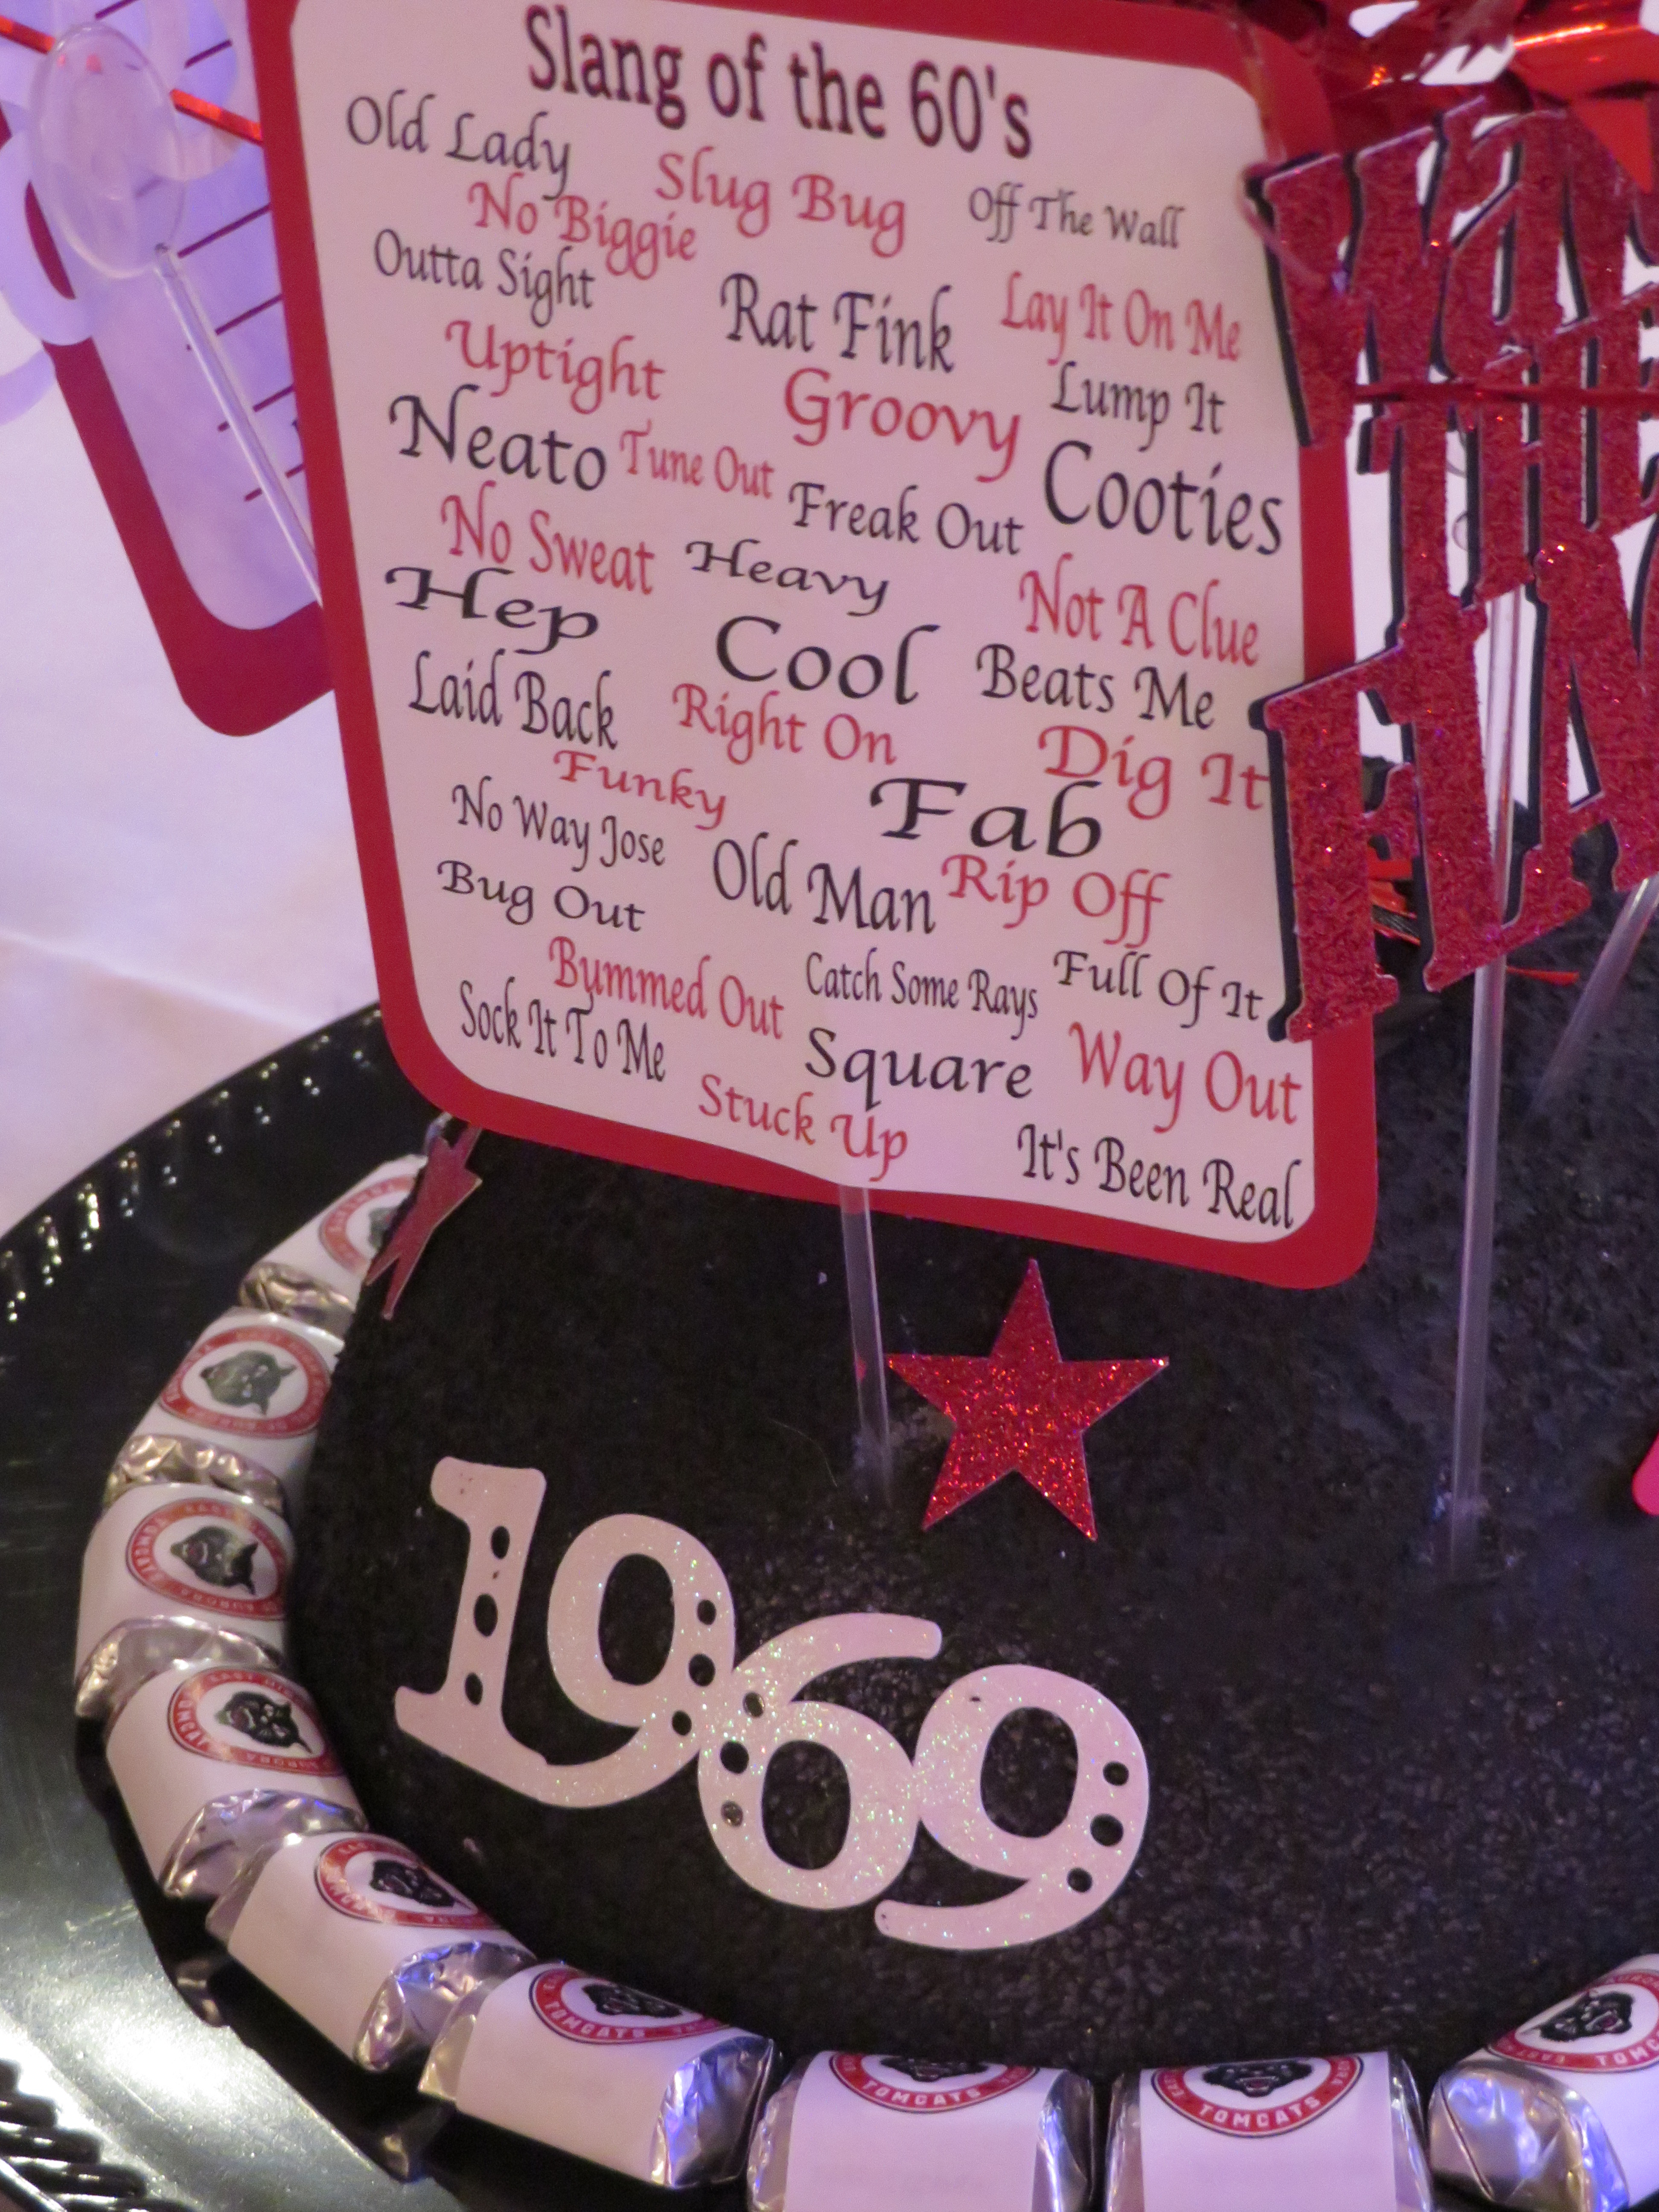 Slang of the 60's
Old Lady
Slug Bug
Off The Wall
No Biggie
Outta Sight
Rat Fink
Lay It On Me
Uptight
Groovy
Lump It
Neato
Tune Out
Freak Out
Cooties
No Sweat
Heavy
Not A Clue
Hep
Cool
Beats Me
Laid Back
Right On
Dig It
Funky
Fab
No Way Jose
Old Man
Rip Off
Bug Out
Bummed Out
Catch Some Rays
Full Of It
Sock It To Me
Square
Way Out
Stuck Up
It's Been Real
1969
TOMCATS
TOMCATS
TOMCATS